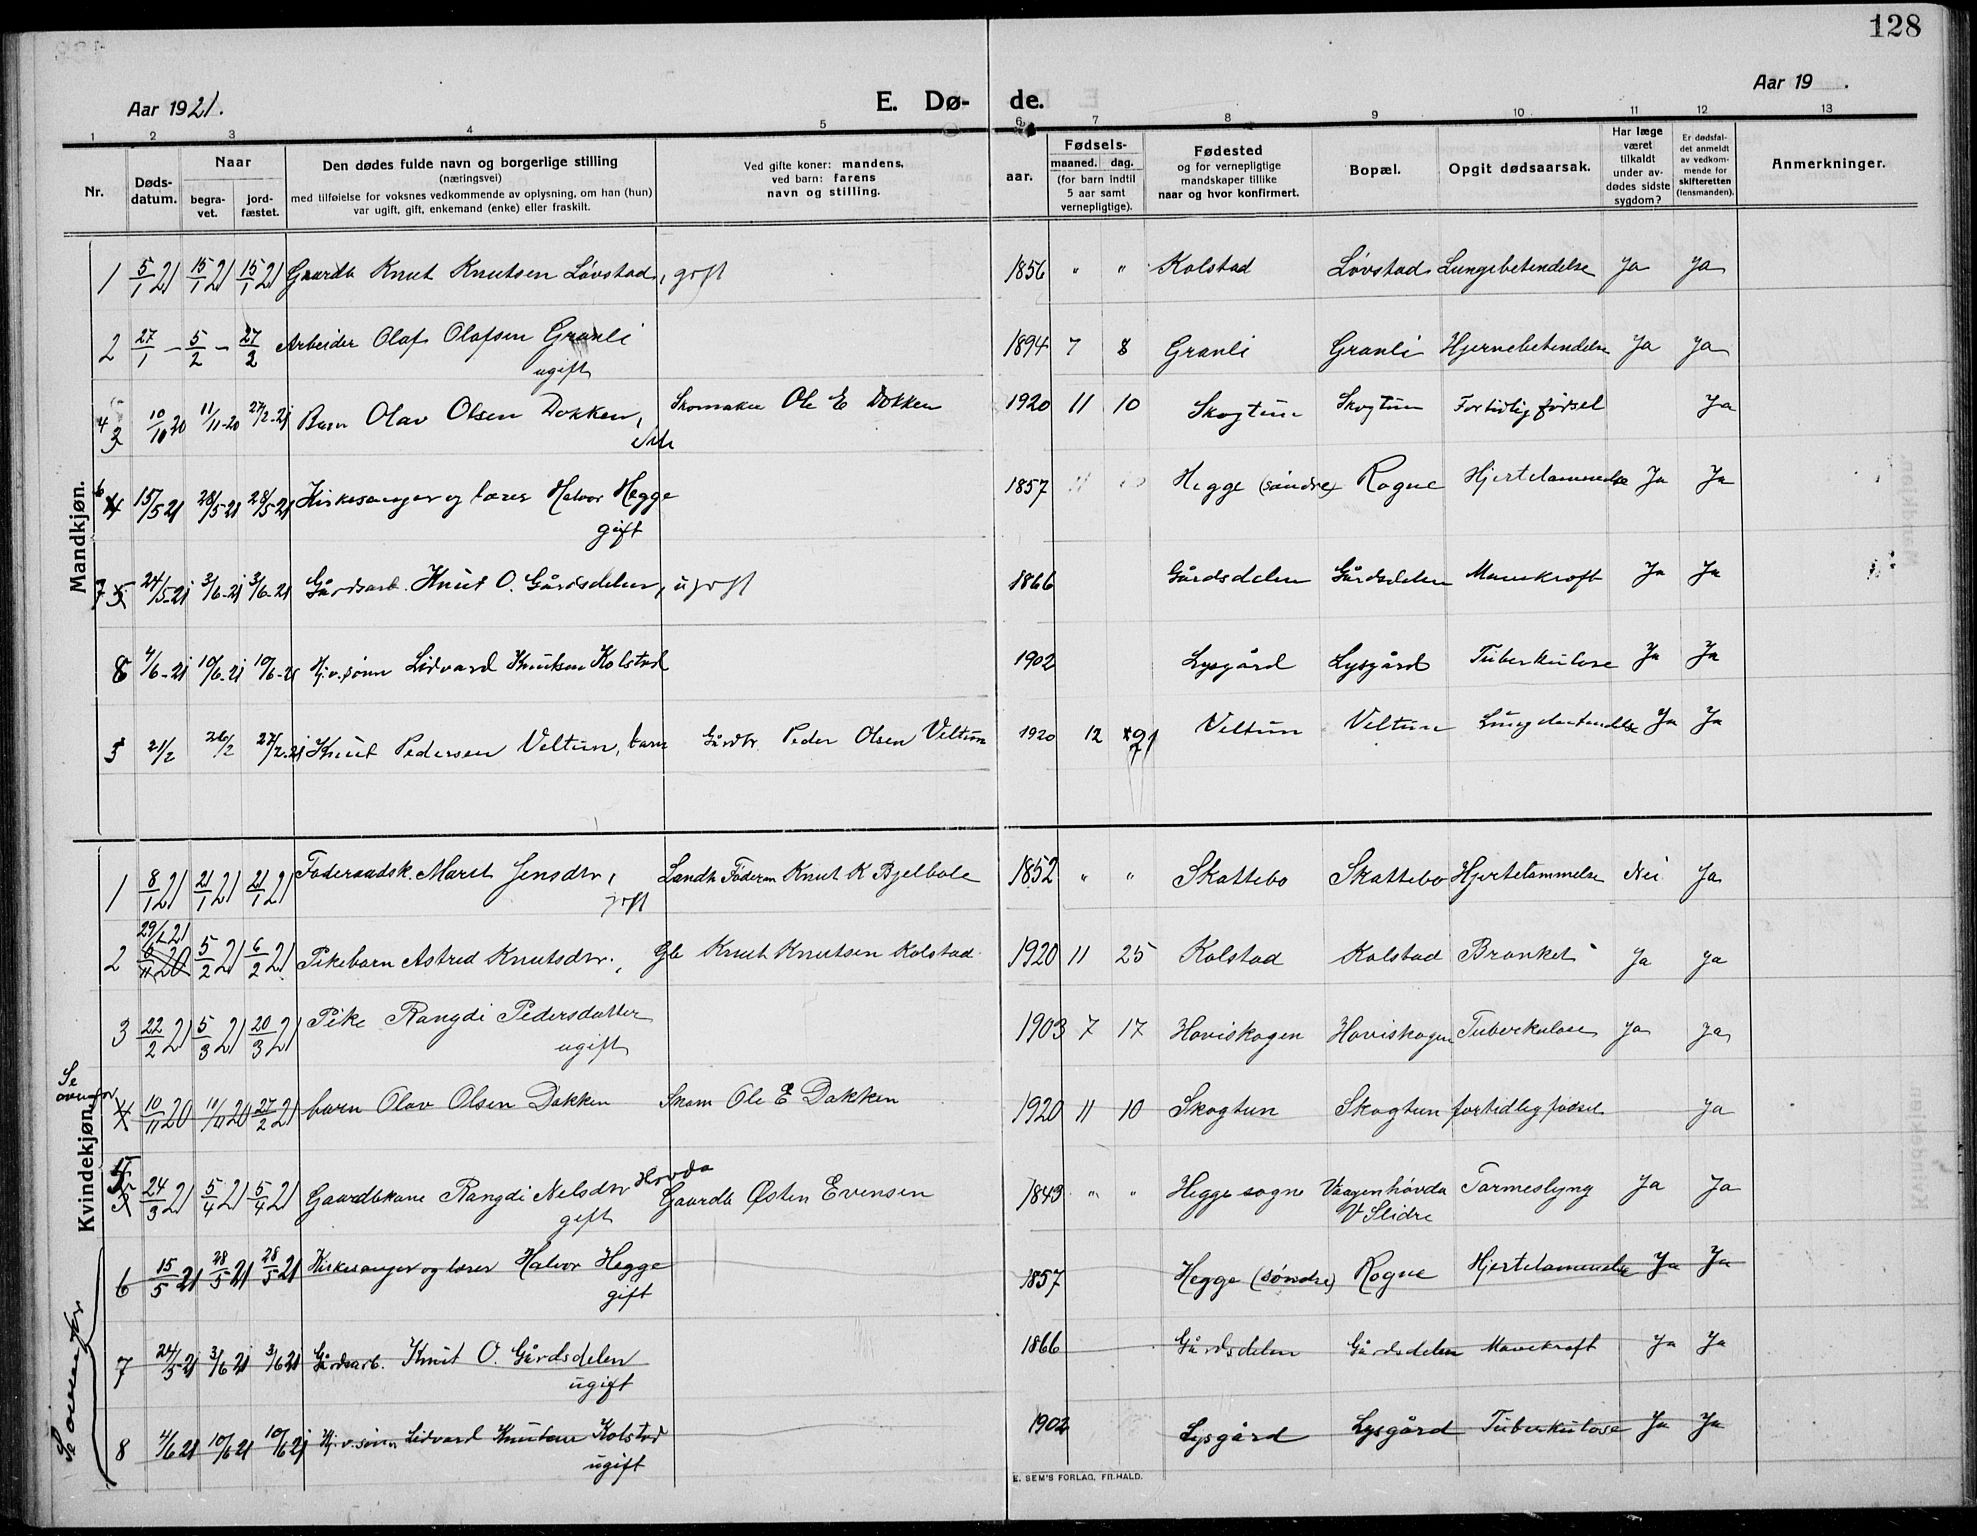 128
Aar 1921.
E. Dø- de.
Aar 19 .
1 2 3 4 5 6 7 8 9 10 11 12 13
Nr.
Døds-
datum.
Naar
begra-
vet.
jord-
fæstet.
Den dødes fulde navn og borgerlige stilling
(næringsvei)
med tilføielse for voksnes vedkommende av oplysning, om han (hun)
var ugift, gift, enkemand (enke) eller fraskilt.
Ved gifte koner: mandens,
ved barn: farens
navn og stilling.
Fødsels-
aar.
maaned. dag.
(for barn indtil
5 aar samt
vernepligtige).
Fødested
og for vernepligtige
mandskaper tillike
naar og hvor konfirmert.
Bopæl.
Opgit dødsaarsak.
Har læge
været
tilkaldt
under av-
dødes sidste
sygdom?
Er dødsfal-
det anmeldt
av vedkom-
mende for
skifteretten
(lensmanden).
Anmerkninger.
Mandkjøn.
1 5/1 21 15/1 21 15/1 21 Gaardb Knut Knutsen Løvstad, gift 1856 " " Kolstad Løvstad Lungebetendelse Ja Ja
2 27/1 – 5/2 – 27/2 Arbeider Olaf Olafsen Granli 1894 7 8 Granli Granli Hjernebetendelse Ja Ja
ugift
4 3 10/10 20 11/11-20 27/2-21 Barn Olav Olsen Dokken, Skomaker Ole E Dokken 1920 11 10 Skogtun Skogtun Fortidlig fødsel Ja
6 4 15/5 21 28/5-21 28/5-21 Kirkesanger og lærer Halvor Hegge 1857 Hegge (søndre) Rogne Hjertelammelse Ja Ja
gift
7 5 24/5-21 3/6-21 3/6-21 Gårdsarb. Knut O. Gårdsdelen, ugift 1866 Gårdsdelen Gårdsdelen Mavekræft Ja Ja
8 4/6-21 10/6-21 10/6-21 Kj.v.sønn Lidvard Knutsen Kolstad 1902 Lysgård Lysgård Tuberkulose Ja Ja
5 21/2 26/2 27/2-21 Knut Pedersen Veltun, barn Gårdbr. Peder Olsen Veltun 1920 12 21 Veltun Veltun Lungebetendelse Ja Ja
Kvindekjøn.
1 8/1 21 21/1 21 21/1 21 Føderaadsk. Marit Jensdtr, Landh Føderm Knut K Bjelbøle 1852 " " Skattebo Skattebo Hjertelammelse Nei Ja
gift
29/1 21
2 6/11 20 5/2 21 6/2 21 Pikebarn Astrid Knutsdtr., Gb Knut Knutsen Kolstad 1920 11 25 Kolstad Kolstad Bronket Ja Ja
3 22/2 21 5/3 21 20/3 21 Pike Rangdi Pedersdatter 1903 7 17 Haviskogen Haviskogen Tuberkulose Ja Ja
ugift
Se
ovenfor
4 10/11 20 10/11 20 27/2 21 barn Olav Olsen Dokken Skom Ole E Dokken 1920 11 10 Skogtun Skogtun fortidlig fødsel Ja
Hovda
5 24/3 21 5/4 21 5/4 21 Gaardbkone Rangdi Nelsdtr Gaardb Østen Evensen 1843 " " Hegge sogne Vaagenhövda Tarmeslyng Ja Ja
gift V Slidre
6 15/5 21 28/5 21 28/5 21 Kirkesanger og lærer Halvor Hegge 1857 Hegge (søndre) Rogne Hjertelammelse Ja Ja
gift
7 24/5-21 3/6 21 3/6 21 Gårdsarb. Knut O. Gårdsdelen 1866 Gårdsdelen Gårdsdelen Mavekræft Ja Ja
ugift
Se ovenfor
8 4/6 21 10/6 21 10/6 21 Kj.v.sønn Lidvard Knutsen Kolstad 1902 Lysgård Lysgård Tuberkulose Ja Ja
ugift
E. SEM'S FORLAG, FR.HALD.